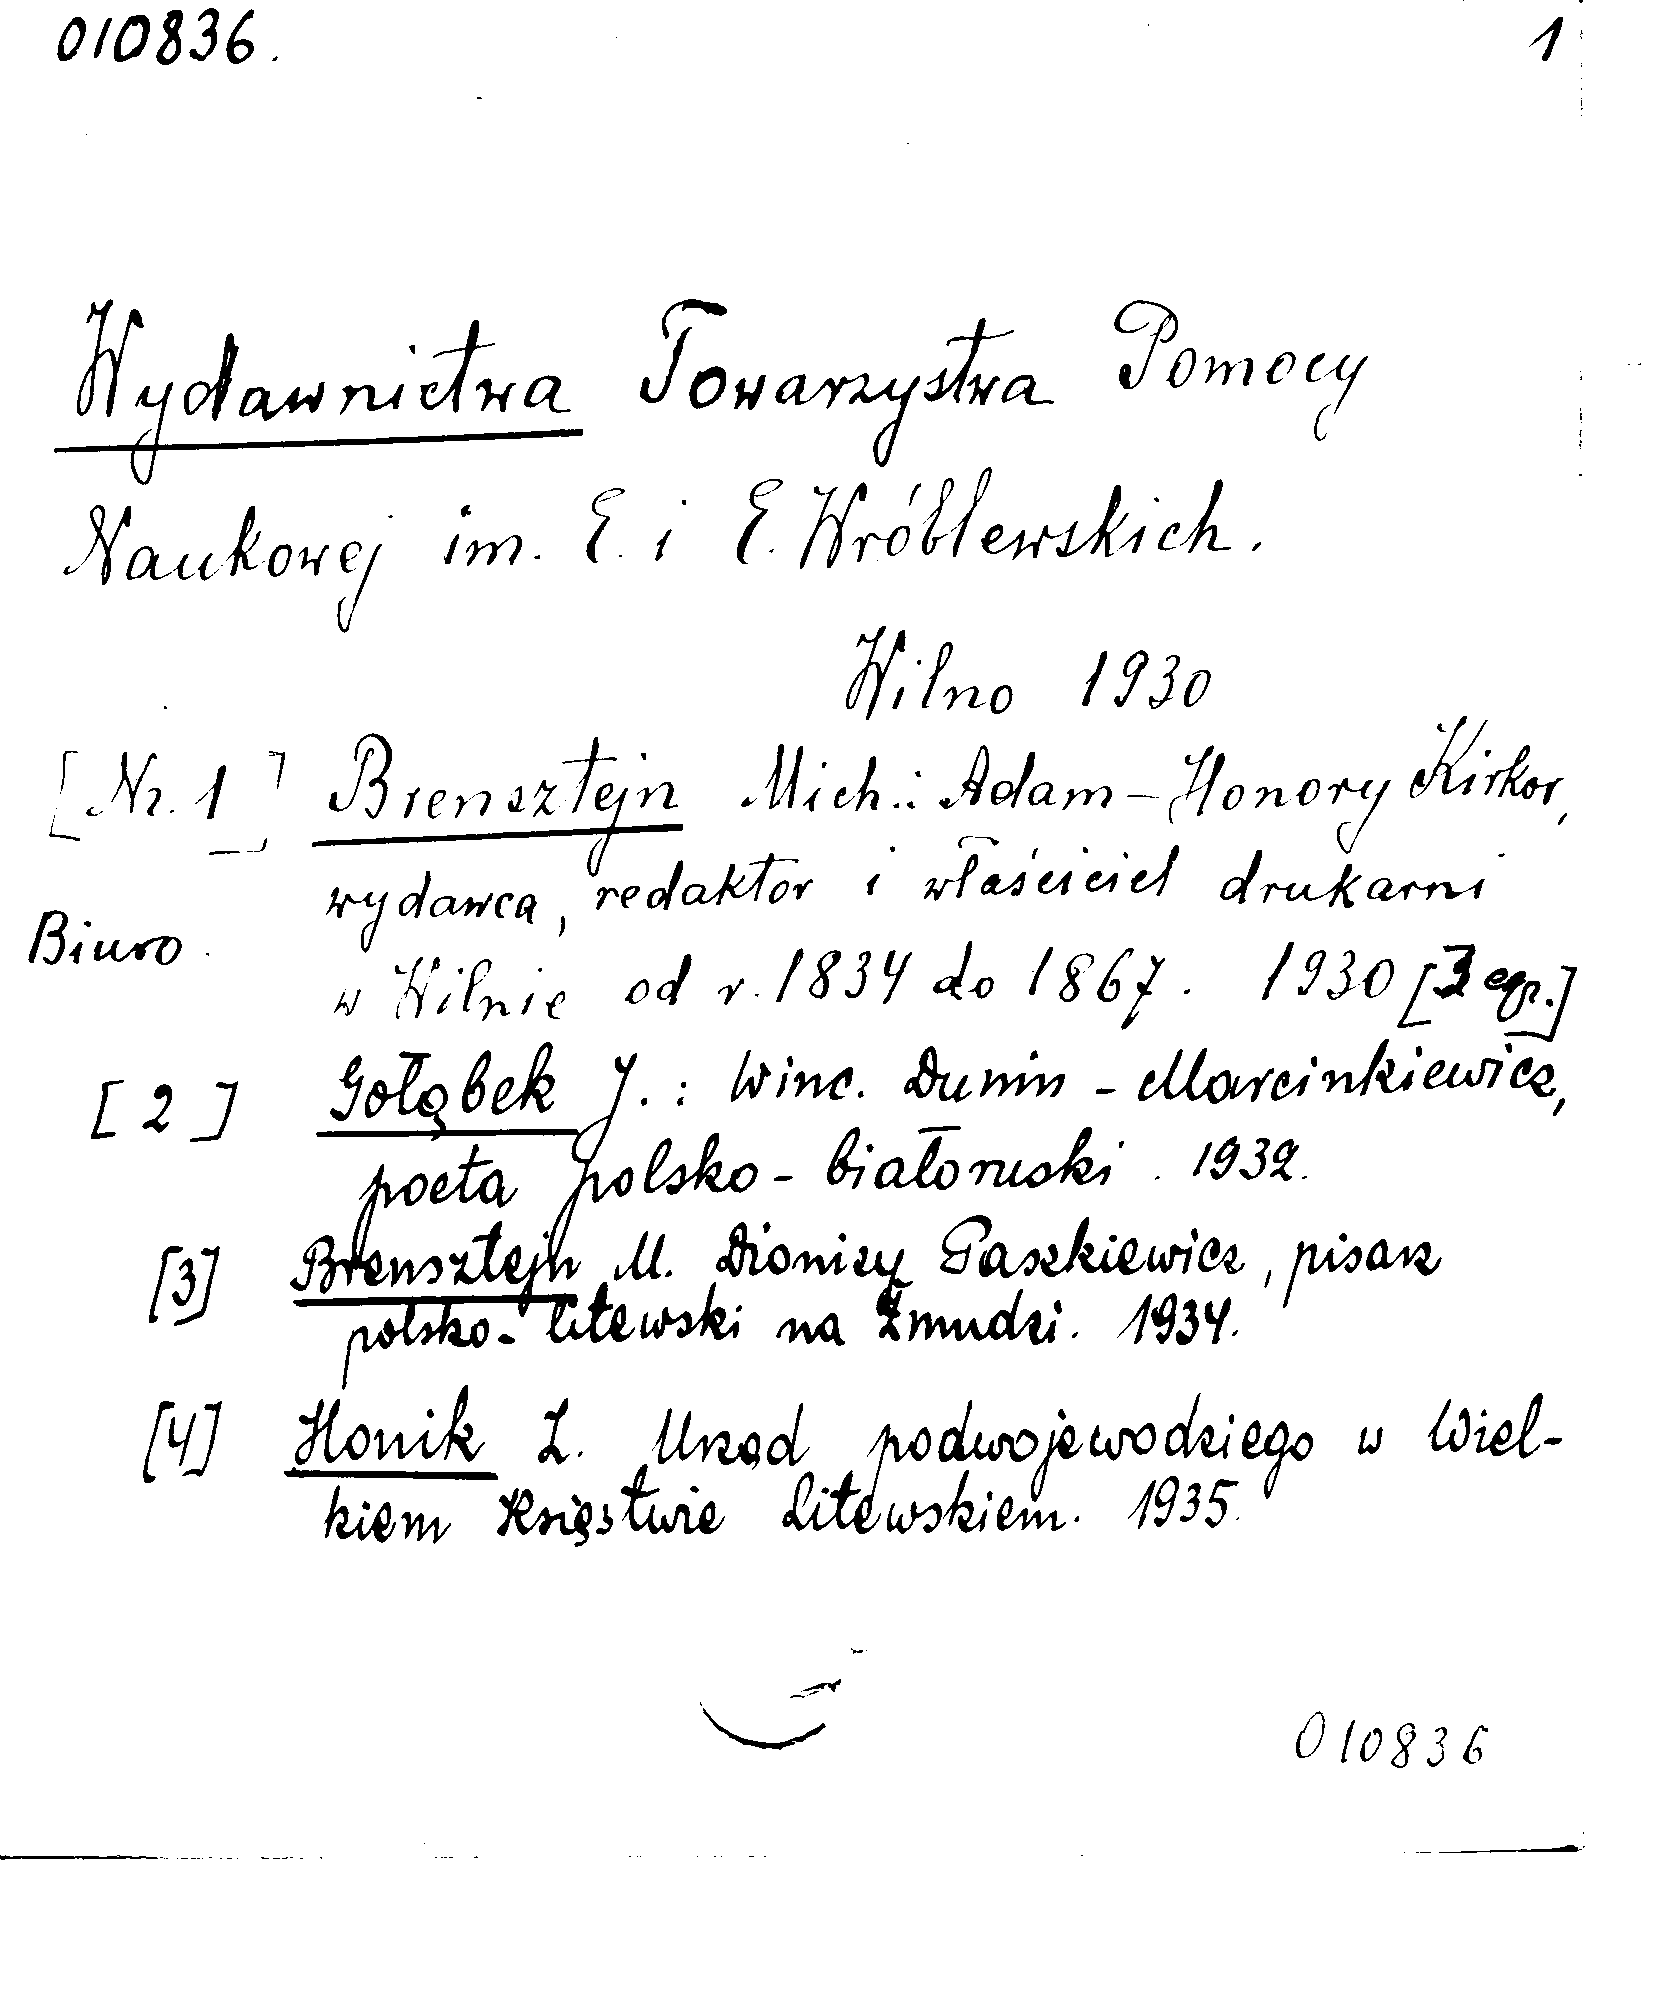 010836.
1
Wydawnictwa Towarzystwa Pomocy
Naukowej im. E. i E. Wróblewskich.
Wilno 1930
[Nr. 1] Brensztejn Mich.: Adam-Honory Kirkor,
wydawca, redaktor i właściciel drukarni
Biuro
w Wilnie od r. 1834 do 1867. 1930 [3 egz.]
[2] Gołąbek J.: Winc. Dunin-Marcinkiewicz,
poeta polsko-białoruski. 1932.
[3] Brensztejn M. Dionizy Paszkiewicz, pisarz
polsko-litewski na Żmudzi. 1934.
[4] Honik L. Urząd podwojewodziego w Wiel-
kiem Księstwie Litewskiem. 1935.
010836